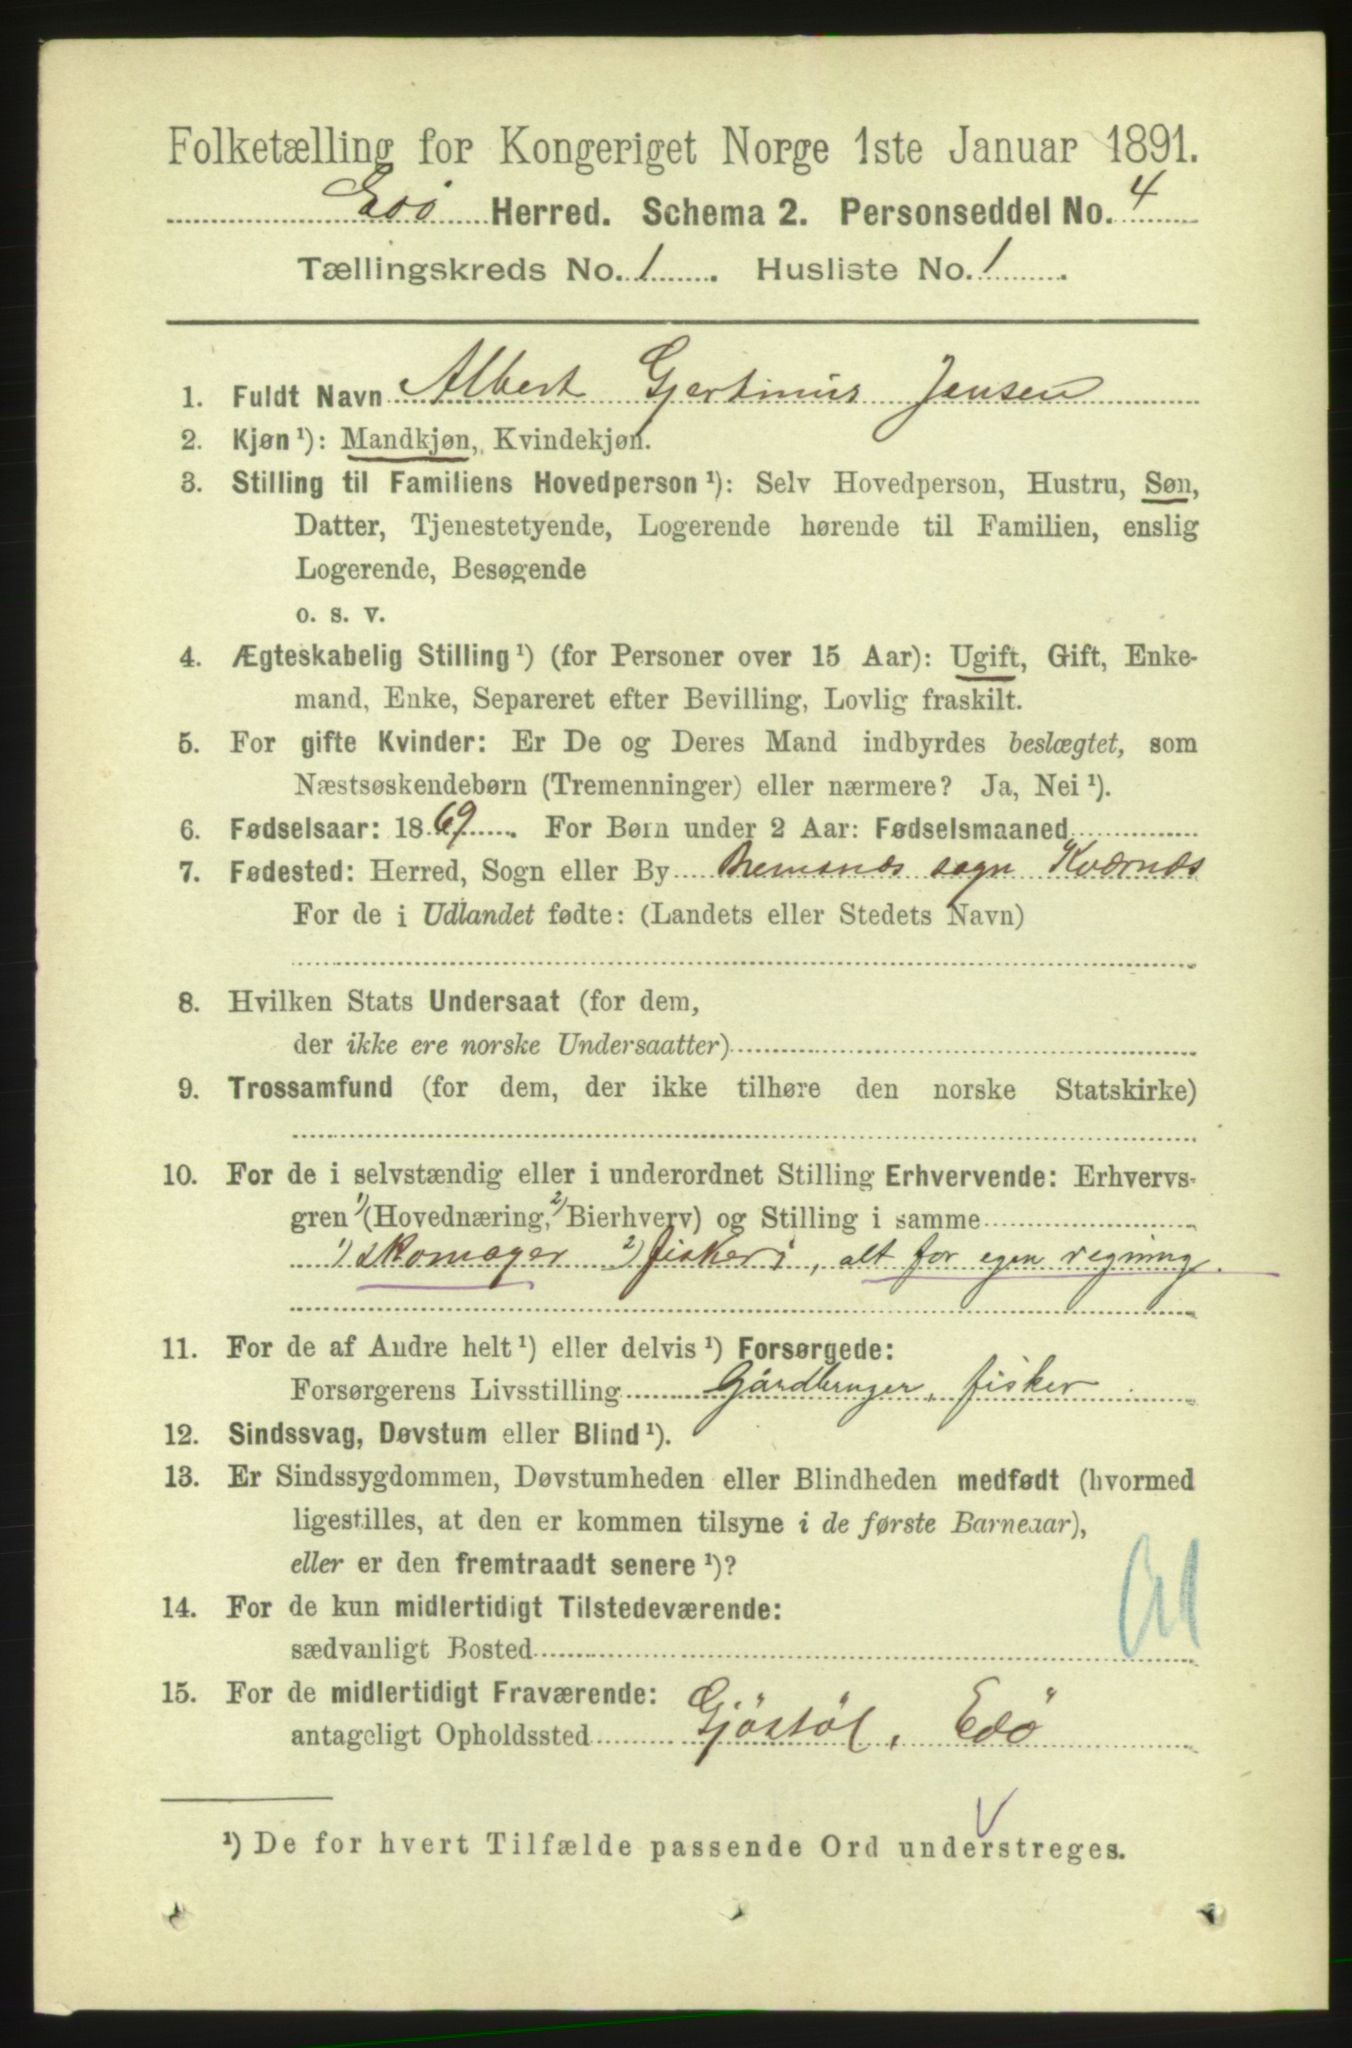 Folketælling for Kongeriget Norge 1ste Januar 1891.
Edö Herred. Schema 2. Personseddel No. 4
Tællingskreds No. 1 . Husliste No. 1 .
1. Fuldt Navn Albert Gjertinius Jensen
2. Kjøn ¹): Mandkjøn, Kvindekjøn.
3. Stilling til Familiens Hovedperson ¹): Selv Hovedperson, Hustru, Søn,
Datter, Tjenestetyende, Logerende hørende til Familien, enslig
Logerende, Besøgende
o. s. v.
4. Ægteskabelig Stilling ¹) (for Personer over 15 Aar): Ugift, Gift, Enke-
mand, Enke, Separeret efter Bevilling, Lovlig fraskilt.
5. For gifte Kvinder: Er De og Deres Mand indbyrdes beslægtet, som
Næstsøskendebørn (Tremenninger) eller nærmere? Ja, Nei ¹).
6. Fødselsaar: 1869 . For Børn under 2 Aar: Fødselsmaaned
7. Fødested: Herred, Sogn eller By Bremsnæs sogn Kværnæs
For de i Udlandet fødte: (Landets eller Stedets Navn)
8. Hvilken Stats Undersaat (for dem,
der ikke ere norske Undersaatter)
9. Trossamfund (for dem, der ikke tilhøre den norske Statskirke)
10. For de i selvstændig eller i underordnet Stilling Erhvervende: Erhvervs-
gren ¹) (Hovednæring, ²) Bierhverv) og Stilling i samme
¹) skomager ²) fiskeri, alt for egen regning.
11. For de af Andre helt ¹) eller delvis ¹) Forsørgede:
Forsørgerens Livsstilling Gårdbruger, fisker
12. Sindssvag, Døvstum eller Blind ¹).
13. Er Sindssygdommen, Døvstumheden eller Blindheden medfødt (hvormed
ligestilles, at den er kommen tilsyne i de første Barneaar),
eller er den fremtraadt senere ¹)?
14. For de kun midlertidigt Tilstedeværende:
sædvanligt Bosted
15. For de midlertidigt Fraværende:
antageligt Opholdssted Gjöstöl, Edö
¹) De for hvert Tilfælde passende Ord understreges.